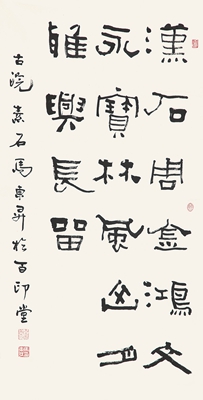 漢石周金鴻文
永寶林風山月
雅興長留
古皖素石馬東昇於百印堂